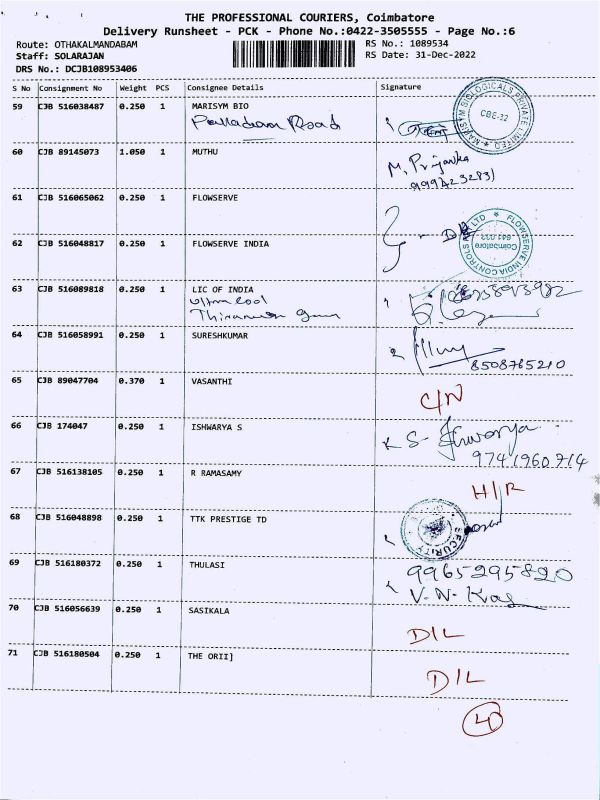 THE PROFESSIONAL COURIERS, Coimbatore
Delivery Runsheet - PCK - Phone No.:0422-3505555 - Page No.:6
Route: OTHAKALMANDABAM RS No.: 1089534
Staff: SOLARAJAN RS Date: 31-Dec-2022
DRS No.: DCJB108953406
S No Consignment No Weight PCS Consignee Details Signature
59 CJB 516038487 0.250 1 MARISYM BIO
Palladam Road
MARISYM BIOLOGICALS PRIVATE LIMITED ★ CBE-32
60 CJB 89145073 1.050 1 MUTHU M. Priyanka
9994232831
61 CJB 516065062 0.250 1 FLOWSERVE
62 CJB 516048817 0.250 1 FLOWSERVE INDIA
FLOWSERVE INDIA CONTROLS LTD ★ Coimbatore
63 CJB 516089818 0.250 1 LIC OF INDIA
64 CJB 516058991 0.250 1 SURESHKUMAR
8508765210
65 CJB 89047704 0.370 1 VASANTHI C/N
66 CJB 174047 0.250 1 ISHWARYA S S- Ishwarya
9741960714
67 CJB 516138105 0.250 1 R RAMASAMY H/R
68 CJB 516048898 0.250 1 TTK PRESTIGE TD
SECURITY
69 CJB 516180372 0.250 1 THULASI 9965295820
V.N.
70 CJB 516056639 0.250 1 SASIKALA D/L
71 CJB 516180504 0.250 1 THE ORII] D/L